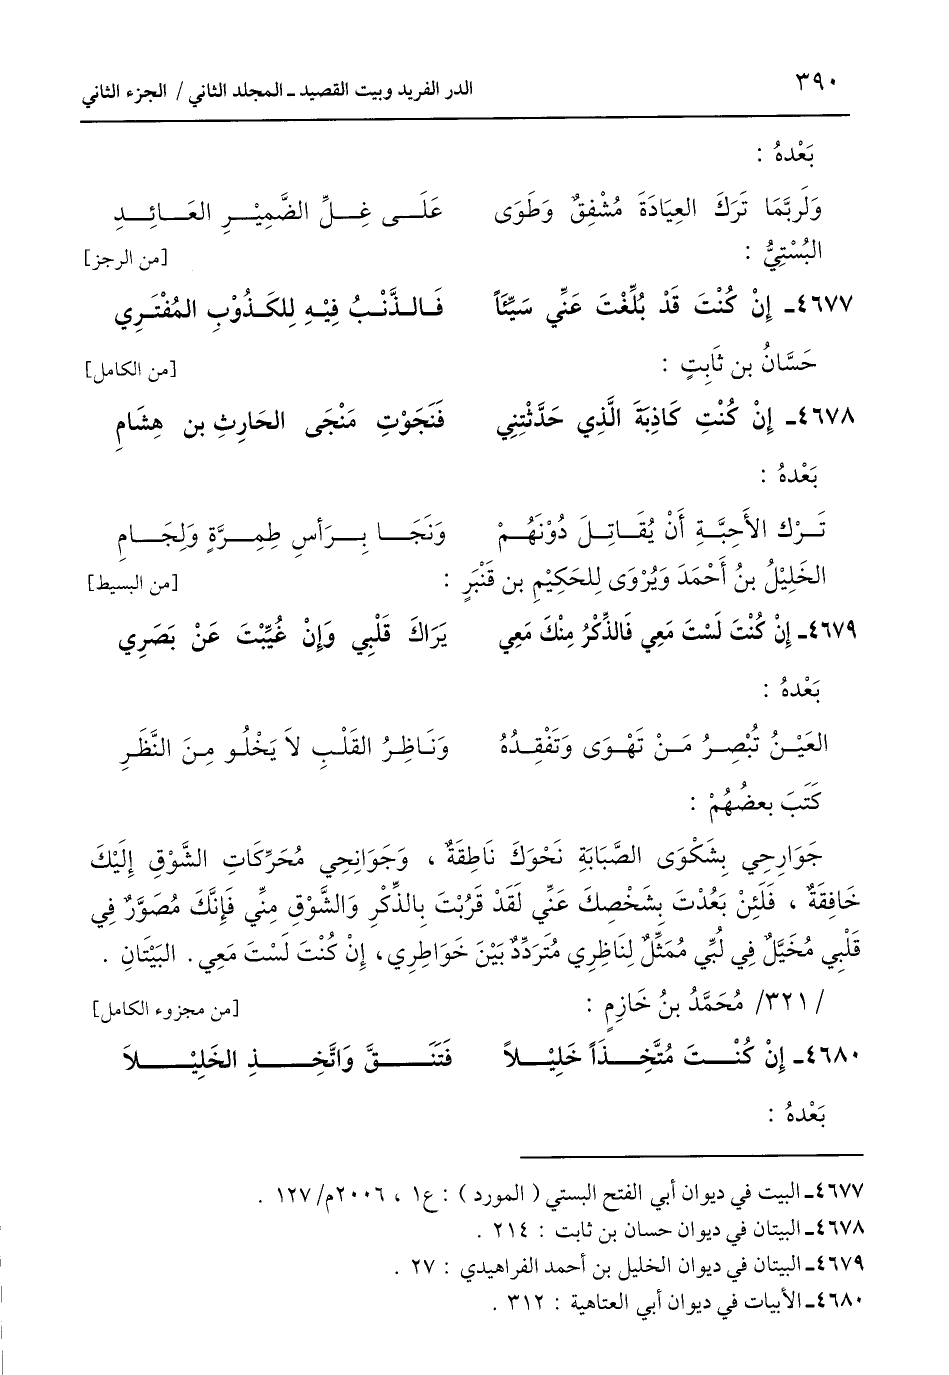 ٣٩٠ الدر الفريد وبيت القصيد ـ المجلد الثاني / الجزء الثاني
بَعْدهُ :
وَلَربَّمَا تَرَكَ العِيَادَةَ مُشْفِقٌ وَطَوَى عَلَـى غِــلِّ الضَّمِيْــرِ العَــائِــدِ
البُسْتِيُّ : [من الرجز]
٤٦٧٧ـ إِنْ كُنْتَ قَدْ بُلِّغْتَ عَنِّي سَيِّئَاً فَـالـذَّنْـبُ فِيْـهِ لِلكَـذُوْبِ المُفْتَـرِي
حَسَّانُ بن ثَابِتٍ : [من الكامل]
٤٦٧٨ـ إِنْ كُنْتِ كَاذِبَةَ الَّذِي حَدَّثْتِنِي فَنَجَوْتِ مَنْجَى الحَارِثِ بن هِشَامِ
بَعْدهُ :
تَـرْك الأَحِبَّـةِ أَنْ يُقَـاتِـلَ دُوْنَهُـمْ وَنَجَــا بِــرَأسِ طِمِــرَّةٍ وَلِجَــامِ
الخَلِيْلُ بنُ أَحْمَدَ وَيُرْوَى لِلحَكِيْمِ بن قَنْبَرٍ : [من البسيط]
٤٦٧٩ـ إِنْ كُنْتَ لَسْتَ مَعِي فَالذِّكْرُ مِنْكَ مَعِي يَرَاكَ قَلْبِي وَإِنْ غُيِّبْتَ عَنْ بَصَرِي
بَعْدهُ :
العَيْـنُ تُبْصِـرُ مَـنْ تَهْـوَى وَتَفْقِـدُهُ وَنَـاظِـرُ القَلْـبِ لاَ يَخْلُـو مِـنَ النَّظَـرِ
كَتَبَ بعضُهُمْ :
جَوَارِحِي بِشَكْوَى الصَّبَابَةِ نَحْوَكَ نَاطِقَةٌ ، وَجَوَانِحِي مُحَرِّكَاتِ الشَّوْقِ إِلَيْكَ
خَافِقَةٌ ، فَلَئِنْ بَعُدْتَ بِشَخْصِكَ عَنِّي لَقَدْ قَرُبْتَ بِالذِّكْرِ وَالشَّوْقِ مِنِّي فَإِنَّكَ مُصَوَّرٌ فِي
قَلْبِي مُخَيَّلٌ فِي لُبِّي مُمَثَّلٌ لِنَاظِرِي مُتَرَدِّدٌ بَيْنَ خَوَاطِرِي، إِنْ كُنْتَ لَسْتَ مَعِي. البَيْتَانِ .
/ ٣٢١/ مُحَمَّدُ بنُ خَازِمٍ : [من مجزوء الكامل]
٤٦٨٠ـ إِنْ كُنْــتَ مُتَّخِــذَاً خَلِيْــلاً فَتَنَــقَّ وَاتَّخِــذِ الخَلِيْــلاَ
بَعْدهُ :
٤٦٧٧ـ البيت في ديوان أبي الفتح البستي ( المورد ) : ع١ ، ٢٠٠٦م/ ١٢٧ .
٤٦٧٨ـ البيتان في ديوان حسان بن ثابت : ٢١٤ .
٤٦٧٩ـ البيتان في ديوان الخليل بن أحمد الفراهيدي : ٢٧ .
٤٦٨٠ـ الأبيات في ديوان أبي العتاهية : ٣١٢ .